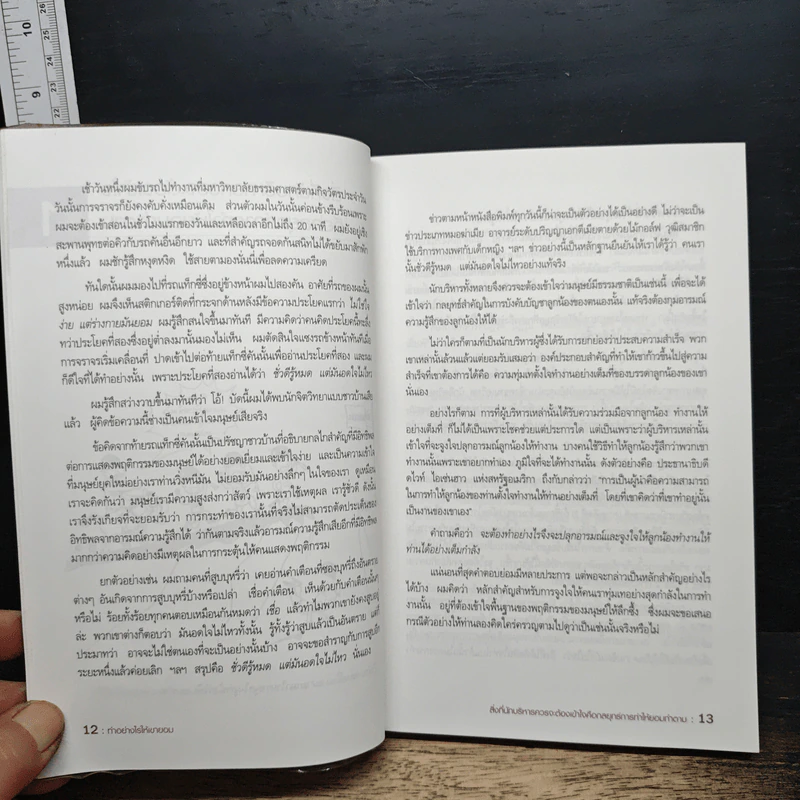 10
9
26
25
24
23
22
เช้าวันหนึ่งผมขับรถไปทำงานที่มหาวิทยาลัยธรรมศาสตร์ตามกิจวัตรประจำวัน
วันนั้นการจราจรก็ยังคงคับคั่งเหมือนเดิม ส่วนตัวผมในวันนั้นค่อนข้างรีบร้อนเพราะ
ผมจะต้องเข้าสอนในชั่วโมงแรกของวันและเหลือเวลาอีกไม่ถึง 20 นาที ผมยังอยู่เชิง
สะพานพุทธต่อคิวกับรถคันอื่นอีกยาว และที่สำคัญรถจอดกันสนิทไม่ได้ขยับมาสักพัก
หนึ่งแล้ว ผมชักรู้สึกหงุดหงิด ใช้สายตามองนั่นนี่เพื่อลดความเครียด
ทันใดนั้นผมมองไปที่รถแท็กซี่ซึ่งอยู่ข้างหน้าผมไปสองคัน อาศัยที่รถของผมนั้น
สูงหน่อย ผมจึงเห็นสติกเกอร์ติดที่กระจกด้านหลังมีข้อความประโยคแรกว่า ไม่ใช่ใจ
ง่าย แต่ร่างกายมันยอม ผมรู้สึกสนใจขึ้นมาทันที มีความคิดว่าคนคิดประโยคนี้จะสื่อ
ทว่าประโยคที่สองซึ่งอยู่ต่ำลงมานั้นมองไม่เห็น ผมตัดสินใจแซงรถข้างหน้าทันทีเมื่อ
การจราจรเริ่มเคลื่อนที่ ปาดเข้าไปต่อท้ายแท็กซี่คันนั้นเพื่ออ่านประโยคที่สอง และผม
ก็ดีใจที่ได้ทำอย่างนั้น เพราะประโยคที่สองอ่านได้ว่า ชั่วดีรู้หมด แต่มันอดใจไม่ไหว
ผมรู้สึกสว่างวาบขึ้นมาทันทีว่า โอ้! บัดนี้ผมได้พบนักจิตวิทยาแบบชาวบ้านเสีย
แล้ว ผู้คิดข้อความนี้ช่างเป็นคนเข้าใจมนุษย์เสียจริง
ข้อคิดจากท้ายรถแท็กซี่คันนั้นเป็นปรัชญาชาวบ้านที่อธิบายกลไกสำคัญที่มีอิทธิพล
ต่อการแสดงพฤติกรรมของมนุษย์ได้อย่างยอดเยี่ยมและเข้าใจง่าย และเป็นความเข้าใจ
ที่มนุษย์ยุคใหม่อย่างเราท่านวิ่งหนีมัน ไม่ยอมรับมันอย่างลึกๆ ในใจของเรา ดูเหมือน
เราจะคิดกันว่า มนุษย์เรามีความสูงส่งกว่าสัตว์ เพราะเราใช้เหตุผล เรารู้ชั่วดี ดังนั้น
เราจึงรังเกียจที่จะยอมรับว่า การกระทำของเรานั้นที่จริงไม่สามารถตัดประเด็นของ
อิทธิพลจากอารมณ์ความรู้สึกได้ ว่ากันตามจริงแล้วอารมณ์ความรู้สึกเสียอีกที่มีอิทธิพล
มากกว่าความคิดอย่างมีเหตุผลในการกระตุ้นให้คนแสดงพฤติกรรม
ยกตัวอย่างเช่น ผมถามคนที่สูบบุหรี่ว่า เคยอ่านคำเตือนที่ซองบุหรี่ถึงอันตราย
ต่างๆ อันเกิดจากการสูบบุหรี่บ้างหรือเปล่า เชื่อคำเตือน เห็นด้วยกับคำเตือนนั้นๆ
หรือไม่ ร้อยทั้งร้อยทุกคนตอบเหมือนกันหมดว่า เชื่อ แล้วทำไมพวกเขายังคงสูบอยู่
ล่ะ พวกเขาต่างก็ตอบว่า มันอดใจไม่ไหวทั้งนั้น รู้ทั้งรู้ว่าสูบแล้วเป็นอันตราย แต่ก็
ประมาทว่า อาจจะไม่ใช่ตนเองที่จะเป็นอย่างนั้นบ้าง อาจจะขอสำราญกับการสูบอีก
ระยะหนึ่งแล้วค่อยเลิก ฯลฯ สรุปคือ ชั่วดีรู้หมด แต่มันอดใจไม่ไหว นั่นเอง
12 : ทำอย่างไรให้เขายอม
ข่าวตามหน้าหนังสือพิมพ์ทุกวันนี้ก็น่าจะเป็นตัวอย่างได้เป็นอย่างดี ไม่ว่าจะเป็น
ข่าวประเภทหมอฆ่าเมีย อาจารย์ระดับปริญญาเอกตีเมียตายด้วยไม้กอล์ฟ วุฒิสมาชิก
ใช้บริการทางเพศกับเด็กหญิง ฯลฯ ข่าวอย่างนี้เป็นหลักฐานยืนยันให้เราได้รู้ว่า คนเรา
นั้นชั่วดีรู้หมด แต่มันอดใจไม่ไหวอย่างแท้จริง
นักบริหารทั้งหลายจึงควรจะต้องเข้าใจว่ามนุษย์มีธรรมชาติเป็นเช่นนี้ เพื่อจะได้
เข้าใจว่า กลยุทธ์สำคัญในการบังคับบัญชาลูกน้องของตนเองนั้น แท้จริงต้องกุมอารมณ์
ความรู้สึกของลูกน้องให้ได้
ไม่ว่าใครก็ตามที่เป็นนักบริหารผู้ซึ่งได้รับการยกย่องว่าประสบความสำเร็จ พวก
เขาเหล่านั้นล้วนแล้วแต่ยอมรับเสมอว่า องค์ประกอบสำคัญที่ทำให้เขาก้าวขึ้นไปสู่ความ
สำเร็จที่เขาต้องการได้คือ ความทุ่มเทตั้งใจทำงานอย่างเต็มที่ของบรรดาลูกน้องของเขา
นั่นเอง
อย่างไรก็ตาม การที่ผู้บริหารเหล่านั้นได้รับความร่วมมือจากลูกน้อง ทำงานให้
อย่างเต็มที่ ก็ไม่ได้เป็นเพราะโชคช่วยแต่ประการใด แต่เป็นเพราะว่าผู้บริหารเหล่านั้น
เข้าใจที่จะจูงใจปลุกอารมณ์ลูกน้องให้ทำงาน บางคนใช้วิธีทำให้ลูกน้องรู้สึกว่าพวกเขา
ทำงานนั้นเพราะเขาอยากทำเอง ภูมิใจที่จะได้ทำงานนั้น ดังตัวอย่างคือ ประธานาธิบดี
ดไวท์ ไอเซ่นฮาว แห่งสหรัฐอเมริกา ถึงกับกล่าวว่า “การเป็นผู้นำคือความสามารถ
ในการทำให้ลูกน้องของท่านตั้งใจทำงานให้ท่านอย่างเต็มที่ โดยที่เขาคิดว่าที่เขาทำอยู่นั้น
เป็นงานของเขาเอง”
คำถามคือว่า จะต้องทำอย่างไรจึงจะปลุกอารมณ์และจูงใจให้ลูกน้องทำงานให้
ท่านได้อย่างเต็มกำลัง
แน่นอนที่สุดคำตอบย่อมมีหลายประการ แต่พอจะกล่าวเป็นหลักสำคัญอย่างไร
ได้บ้าง ผมคิดว่า หลักสำคัญสำหรับการจูงใจให้คนเราทุ่มเทอย่างสุดกำลังในการทำ
งานนั้น อยู่ที่ต้องเข้าใจพื้นฐานของพฤติกรรมของมนุษย์ให้ลึกซึ้ง ซึ่งผมจะขอเสนอ
กรณีตัวอย่างให้ท่านลองคิดใคร่ครวญตามไปดูว่าเป็นเช่นนั้นจริงหรือไม่
สิ่งที่นักบริหารควรจะต้องเข้าใจคือกลยุทธ์การทำให้ยอมทำตาม : 13